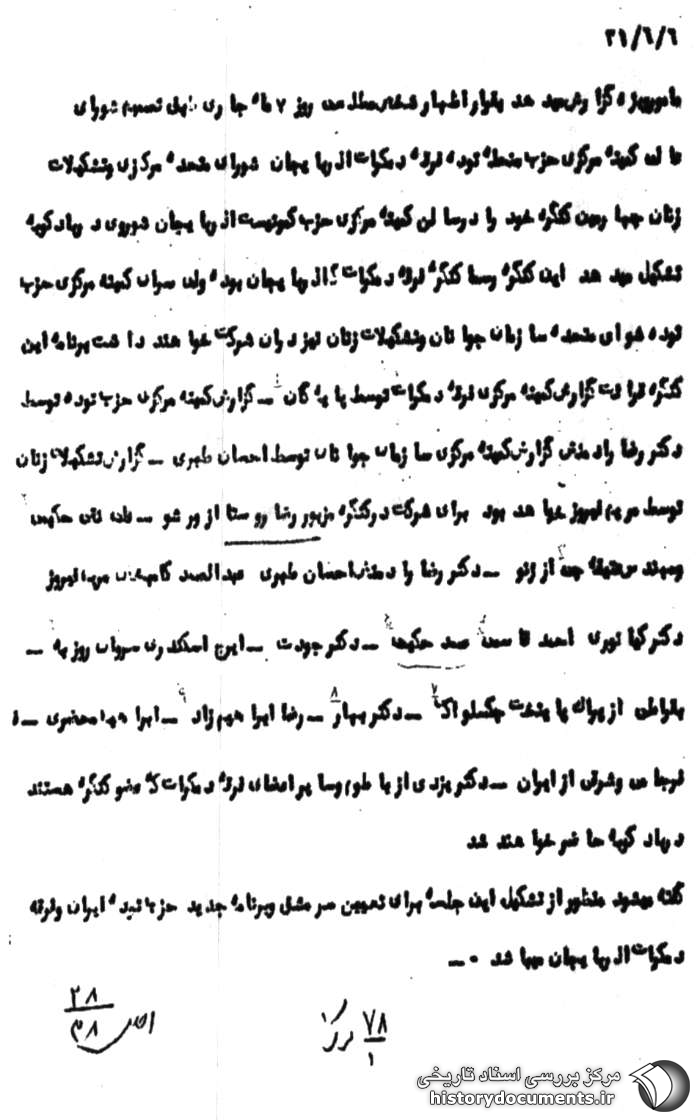 ۳۱/۶/۶
مامورویژه گزارش میدهد بقرار اظهار شخص مطلعی روز ۷ ماه جاری طبق تصمیم شورای
عالی کمیته مرکزی حزب منحله توده فرقه دمکرات اذربایجان شورای متحده مرکزی وتشکیلات
زنان چهارمین کنگره خود را درسالن کمیته مرکزی حزب کمونیست اذربایجان شوروی دربادکوبه
تشکیل میدهد این کنگره رسما کنگره فرقه دمکرات اذربایجان بوده ولی سران کمیته مرکزی حزب
توده شورای متحده سازمان جوانان وتشکیلات زنان نیز دران شرکت خواهند داشت برنامه این
کنگره قرائت گزارش کمیته مرکزی فرقه دمکرات توسط پادگان ـ گزارش کمیته مرکزی حزب توده توسط
دکتر رضا رادمنش گزارش کمیته مرکزی سازمان جوانان توسط احسان طبری ـ گزارش تشکیلات زنان
توسط مریم فیروز خواهد بود برای شرکت درکنگره مزبور رضا روستا از ورشو ـ خانم حکیمی
از ژنو ـ دکتر رضا رادمنش احسان طبری عبدالصمد کامبخش مریم فیروز
دکتر کیانوری احمد قاسمی صمد حکیمی ـ دکتر جودت ـ ایرج اسکندری سروان روزبه ـ
بقراطی از پراک پایتخت چکسلواکی ـ دکتر بهار ـ رضا ابراهیم زاده ـ ابراهیم محضری ـ
فرجامی وشرقی از ایران ـ دکتر یزدی از وسایر اعضای فرقه دمکرات که عضو کنگره هستند
دربادکوبه حاضر خواهند شد
گفته میشود منظور از تشکیل این جلسه برای تعیین سرمشق وبرنامه جدید حزب توده ایران وفرقه
دمکرات اذربایجان میباشد ۰ـ
۲۸
۷۸
۱
مرکز بررسی اسناد تاریخی
historydocuments.ir